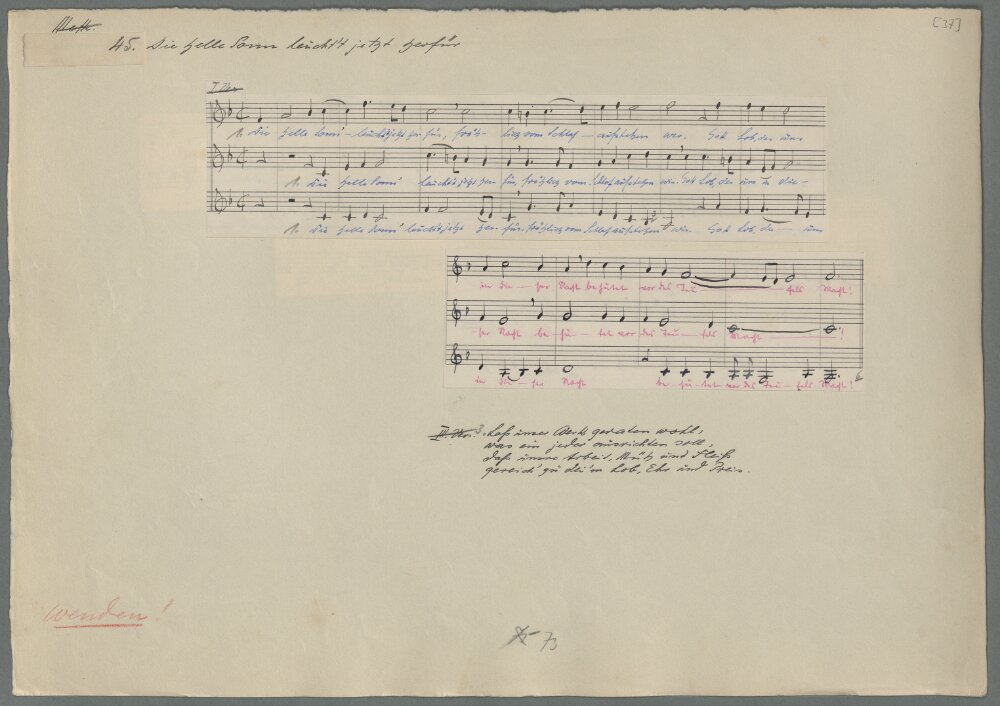 [37]
45. Die helle Sonn leucht't jetzt herfür
1. Die helle Sonn' – leucht't jetzt herfür, fröh – lich vom Schlaf – aufstehen wir. Gott Lob, der uns
1. Die helle Sonn' leucht't jetzt herfür, fröhlich vom Schlaf aufstehen wir. Gott Lob, der uns in die –
1. Die helle Sonn' leucht't jetzt herfür, fröhlich vom Schlaf aufstehen wir. Gott Lob, der – uns
in die – ser Nacht behütet vor des Teu – fels Macht!
– ser Nacht be – hü – tet vor des Teu – fels Macht – !
in die – ser Nacht be – hü – tet vor des Teu – fels Macht!
3. Laß unser Werk geraten wohl,
was ein jeder ausrichten soll,
daß unsre Arbeit, Müh und Fleiß
gereich' zu dei'm Lob, Ehr und Preis.
wenden!
73